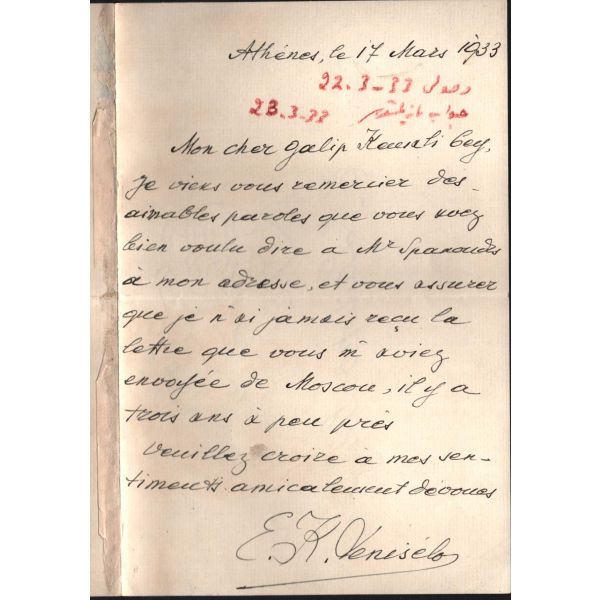 Athènes, le 17 Mars 1933
وصولى 22.3-33
جواب 23.3-33
Mon cher Galip Kemali bey,
Je viens vous remercier des
aimables paroles que vous avez
bien voulu dire a Mr Spanoudis
à mon adresse, et vous assurer
que je n'ai jamais reçu la
lettre que vous m'aviez
envoyée de Moscou, il y a
trois ans à peu près
Veuillez croire à mes sen-
timents amicalement dévoués
E. K. Venisélos